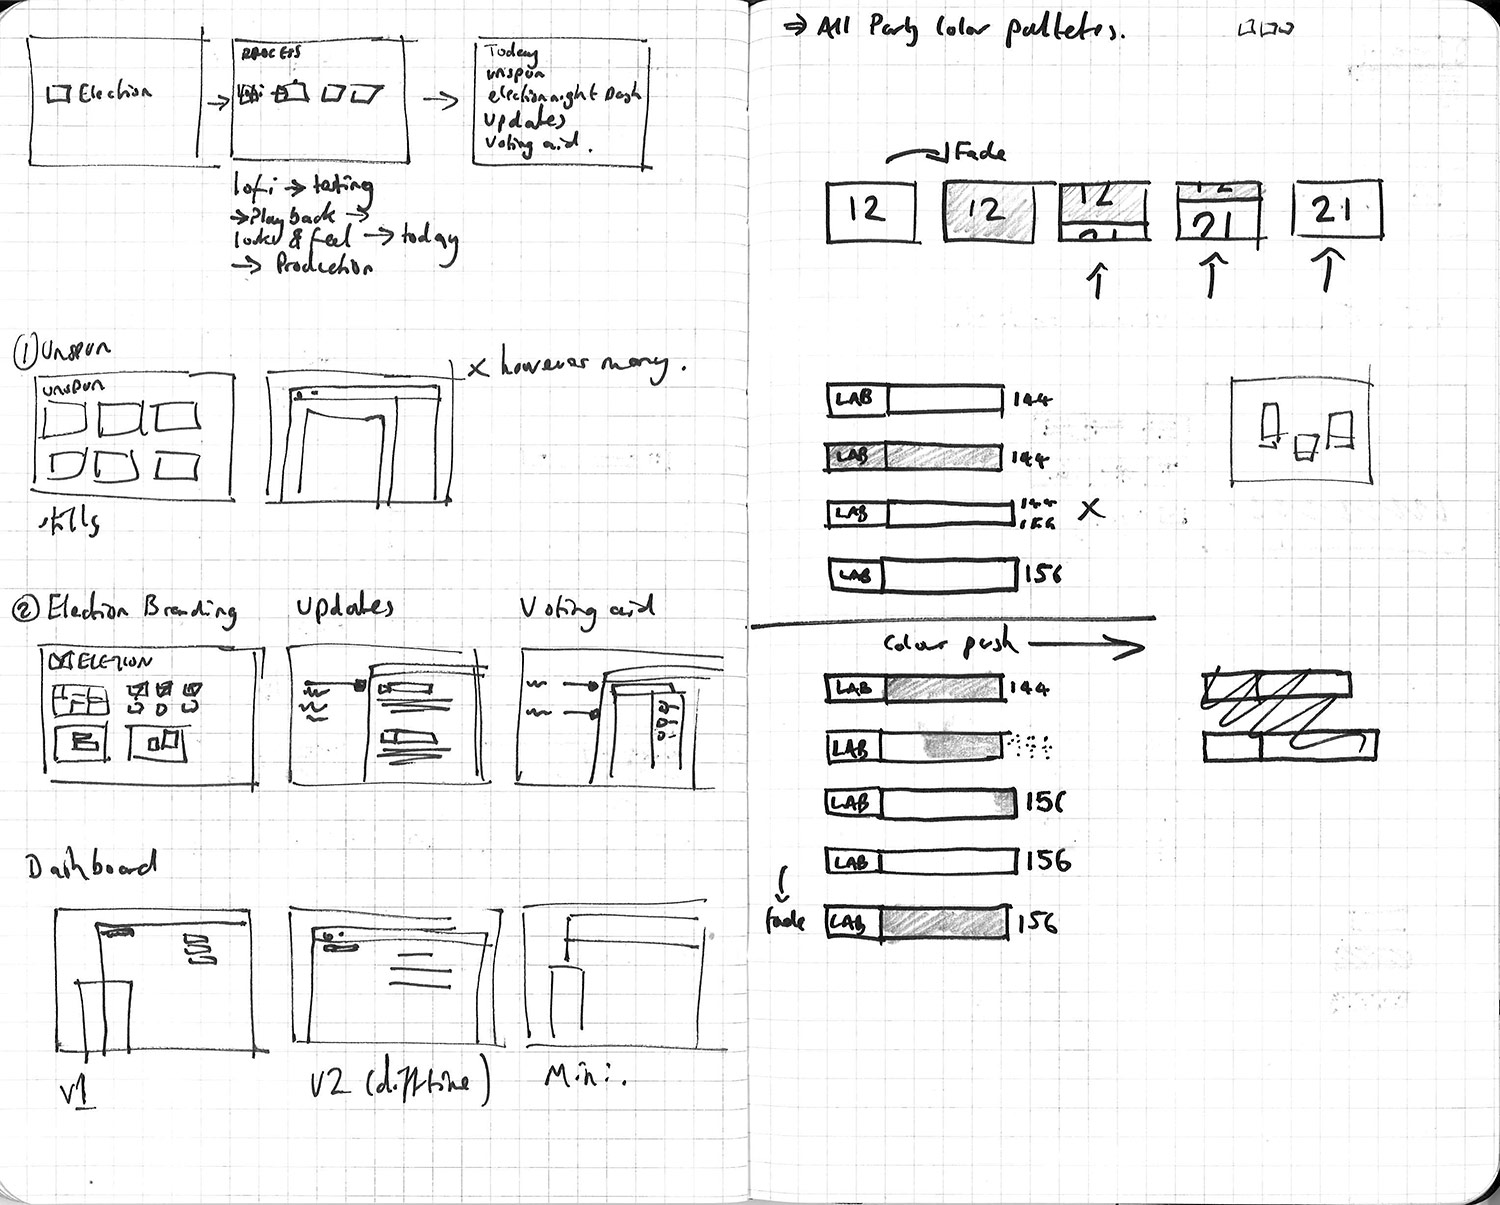 Election
PROCESS
Today
unspun
election night Dash
updates
Voting aid.
lofi → testing
→ Playback →
looks & feel → today
→ Production
① Unspun
unspun
x however many.
stills
② Election Branding
updates
Voting aid
ELETION
Dashboard
V1
V2 (diff time)
Mini.
⇒ All Party Color palletes.
Fade
12
12
12
21
12
21
21
LAB 144
LAB 144
LAB 144
156 X
LAB 156
Colour push →
LAB 144
LAB
LAB 156
LAB 156
fade LAB 156